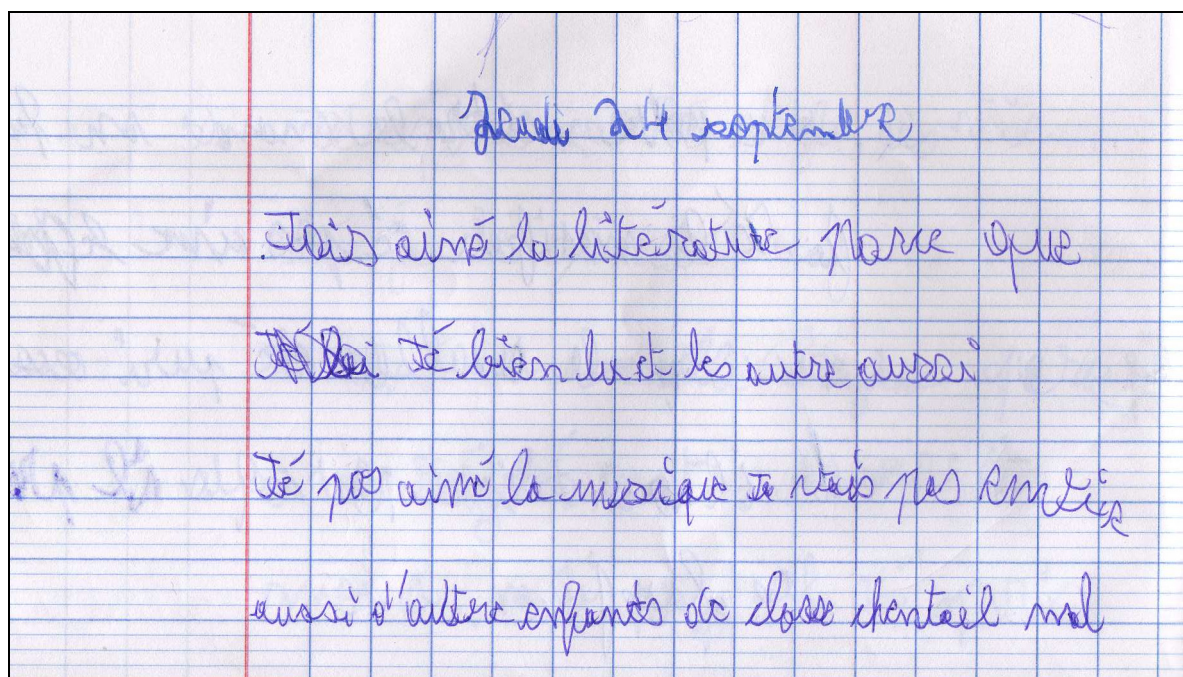 Jeudi 24 septembre
Jais aimé la litérature parce que
Jé bien lu et les autre aussi
Jé pas aimé la musique Je n'tais pas envie
aussi d'autre enfants de classe chentail mal